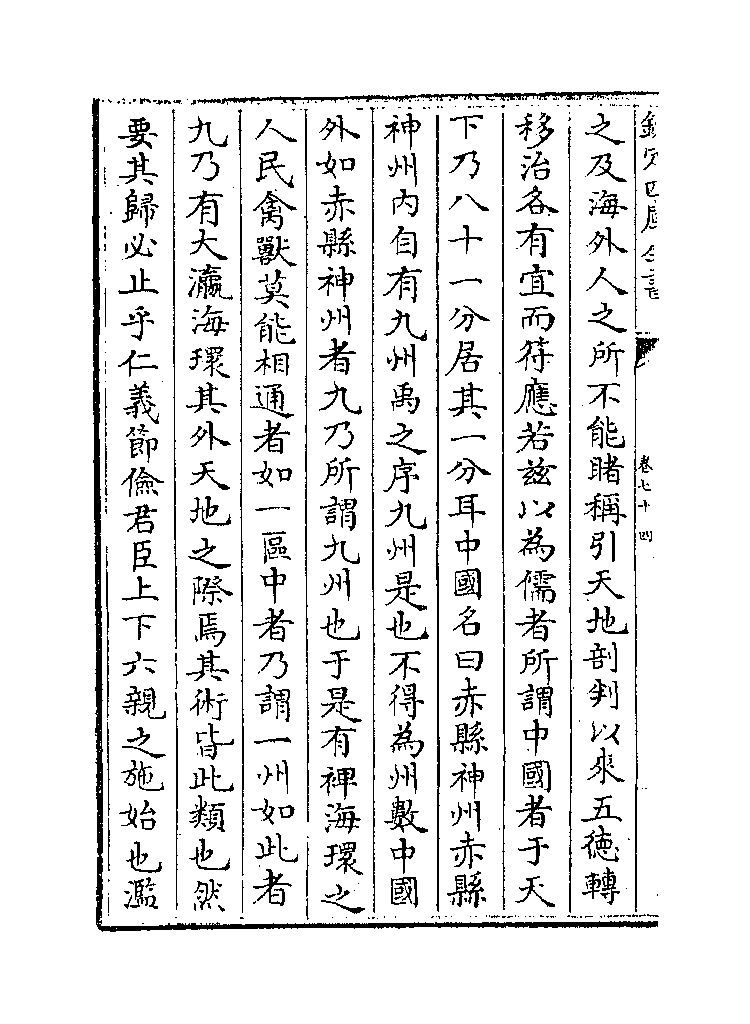 欽定四庫全書
卷七十四
之及海外人之所不能睹稱引天地剖判以來五德轉
移治各有宜而符應若兹以為儒者所謂中國者于天
下乃八十一分居其一分耳中國名曰赤縣神州赤縣
神州內自有九州禹之序九州是也不得為州數中國
外如赤縣神州者九乃所謂九州也于是有裨海環之
人民禽獸莫能相通者如一區中者乃謂一州如此者
九乃有大瀛海環其外天地之際焉其術皆此類也然
要其歸必止乎仁義節儉君臣上下六親之施始也濫